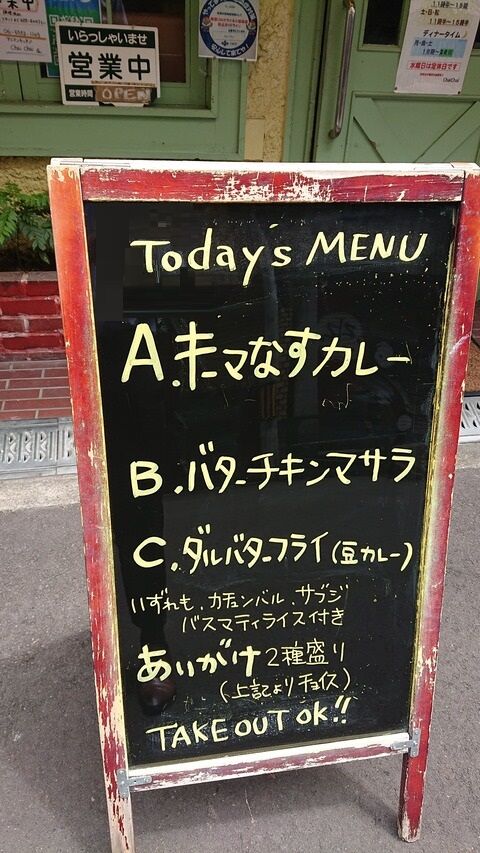 いらっしゃいませ
営業中
営業時間 OPEN
11時半〜15時
土・日・祝
11時半〜16時
ディナータイム
水曜日は定休日です
ChaiChai
Today's MENU
A.キーマなすカレー
B.バターチキンマサラ
C.ダルバターフライ(豆カレー)
いずれも、カチュンバル、サブジ
バスマティライス付き
あいがけ2種盛り
(上記よりチョイス)
TAKE OUT OK!!